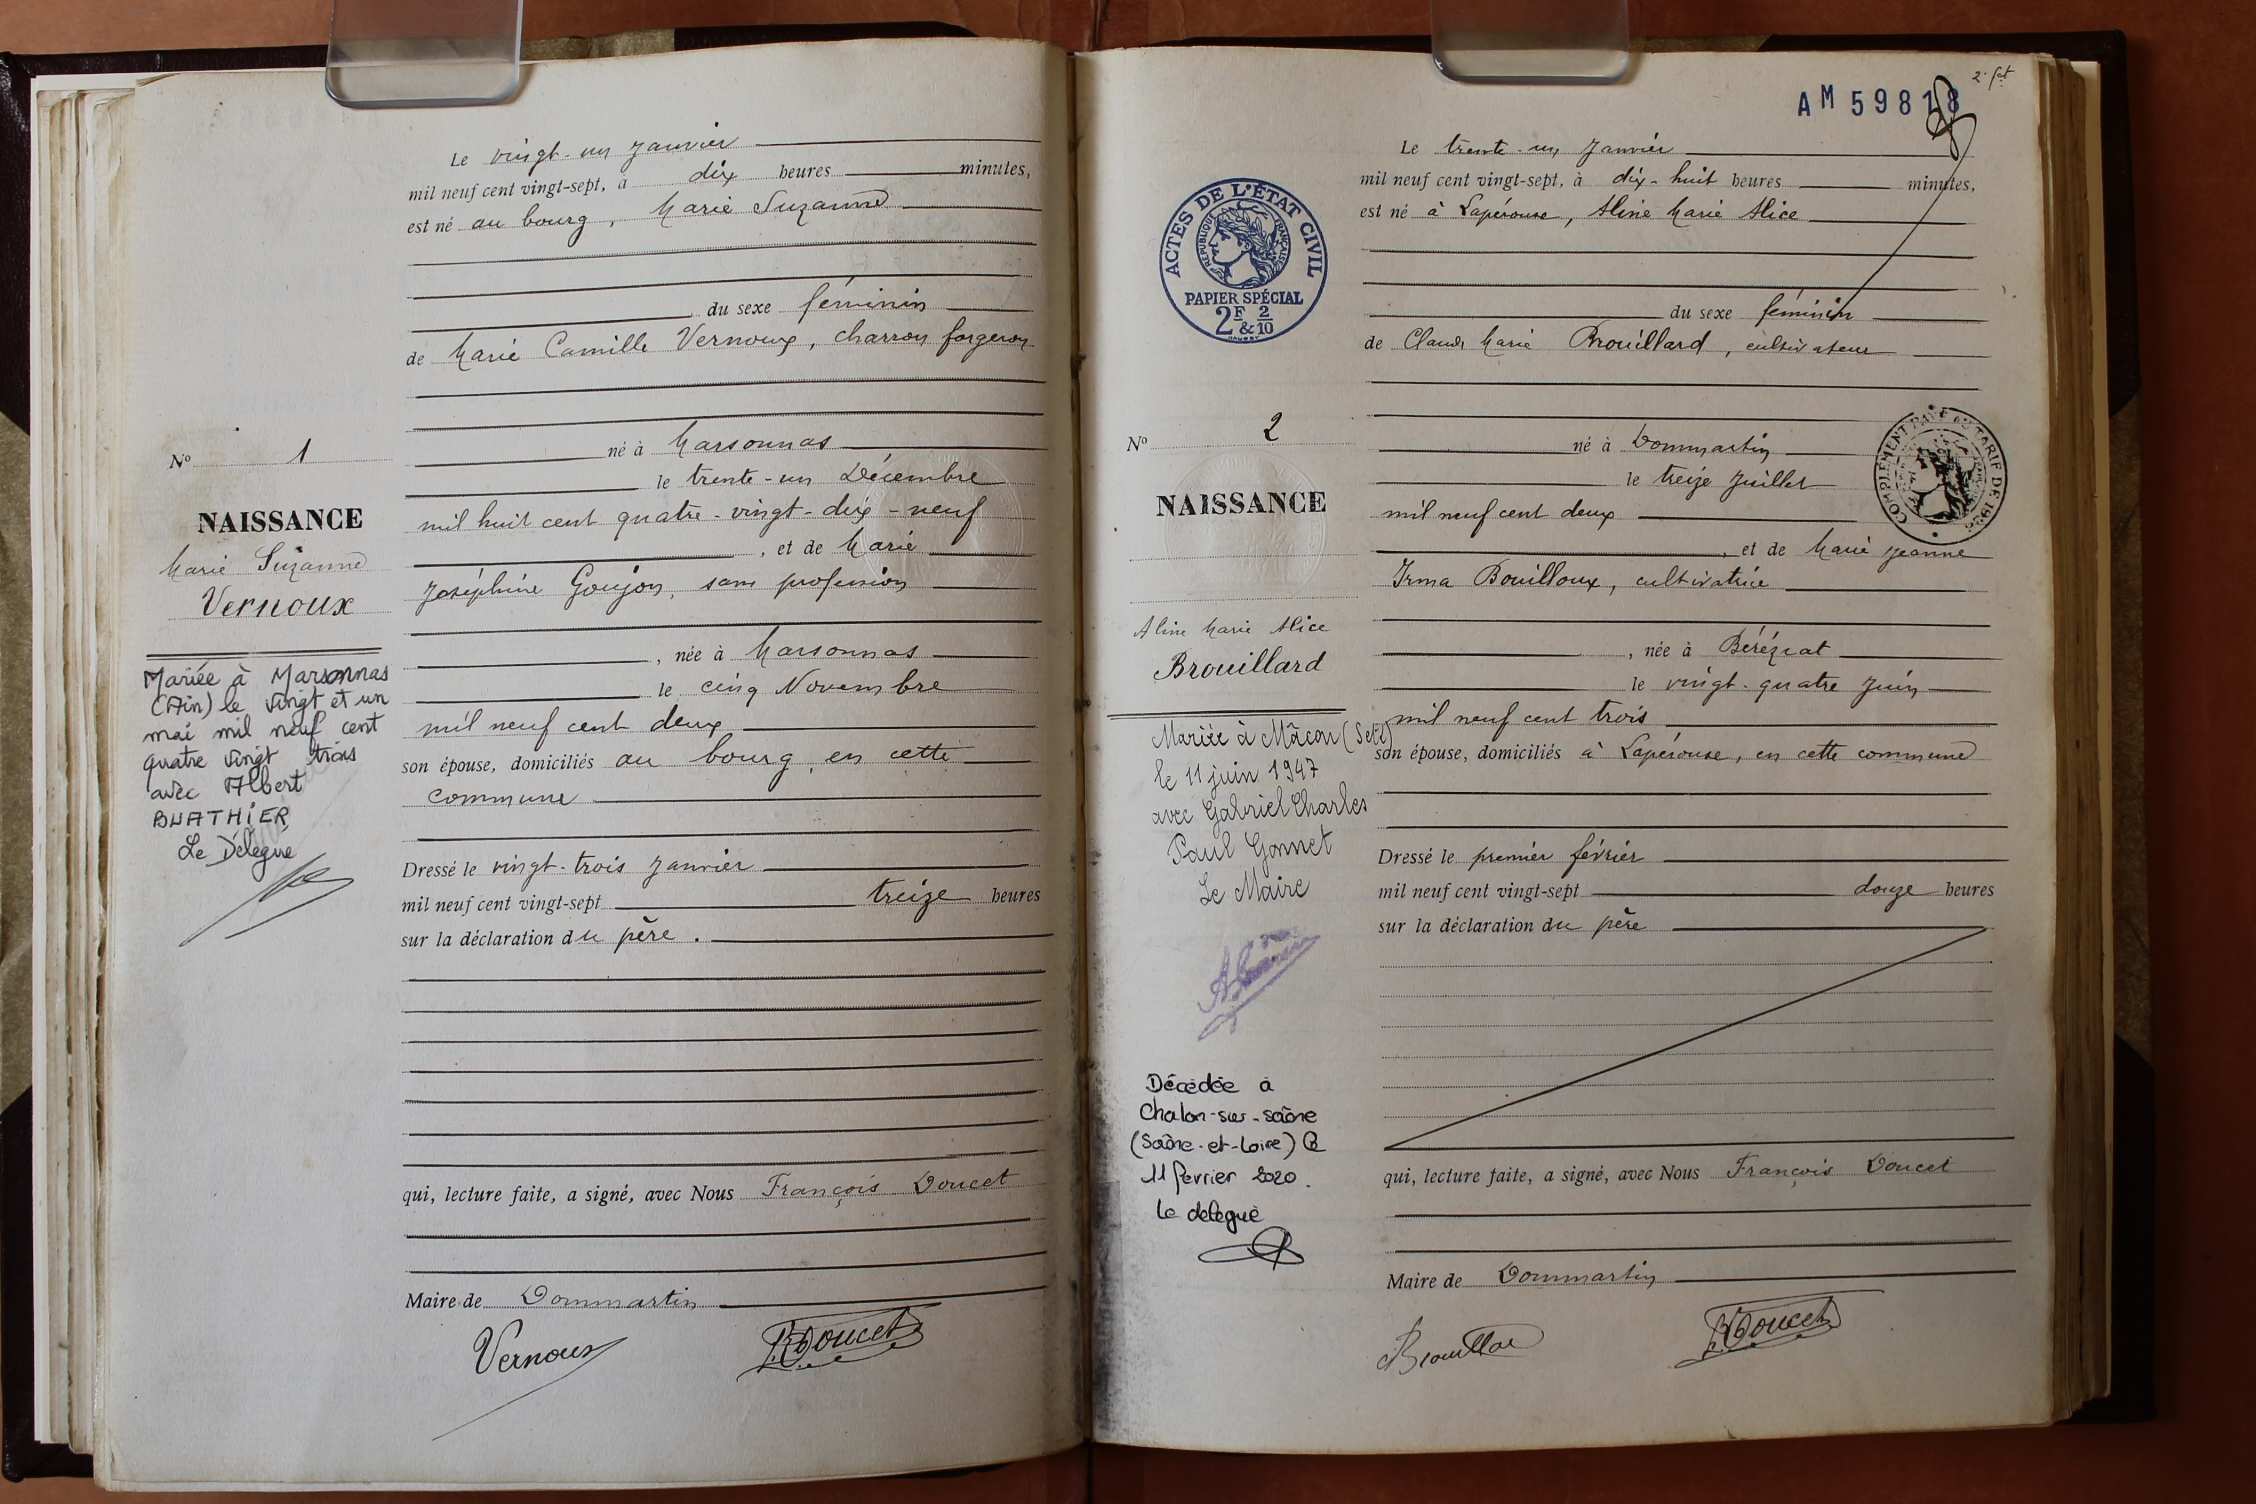 Le vingt-un Janvier
mil neuf cent vingt-sept, à dix heures minutes,
est né au bourg, Marie Suzanne
du sexe féminin
de Marie Camille Vernoux, charron forgeron
né à Marsonnas
le trente-un Décembre
mil huit cent quatre-vingt-dix-neuf
, et de Marie
Joséphine Goujon, sans profession
, née à Marsonnas
le cinq Novembre
mil neuf cent deux
son épouse, domiciliés au bourg, en cette
commune
Dressé le vingt-trois Janvier
mil neuf cent vingt-sept treize heures
sur la déclaration du père.
qui, lecture faite, a signé, avec Nous François Doucet
Maire de Dommartin
Vernoux Doucet
No 1
NAISSANCE
Marie Suzanne
Vernoux
Mariée à Marsonnas
(Ain) le vingt et un
mai mil neuf cent
quatre vingt trois
avec Albert
BUATHIER
Le Délégué
AM 59818
ACTES DE L'ÉTAT CIVIL
RÉPUBLIQUE FRANÇAISE
PAPIER SPÉCIAL
2F & 2/10
Le trente-un Janvier
mil neuf cent vingt-sept, à dix-huit heures minutes,
est né à Lapérouse, Aline Marie Alice
du sexe féminin
de Claude Marie Brouillard, cultivateur
né à Dommartin
le treize Juillet
mil neuf cent deux
, et de Marie Jeanne
Irma Bouilloux, cultivatrice
, née à Béréziat
le vingt-quatre Juin
mil neuf cent trois
son épouse, domiciliés à Lapérouse, en cette commune
Dressé le premier février
mil neuf cent vingt-sept douze heures
sur la déclaration du père
qui, lecture faite, a signé, avec Nous François Doucet
Maire de Dommartin
Brouillard Doucet
COMPLÉMENT PAYÉ AU TARIF DE 1926
No 2
NAISSANCE
Aline Marie Alice
Brouillard
Mariée à Mâcon (S et L)
le 11 juin 1947
avec Gabriel Charles
Paul Gonnet
Le Maire
Décédée à
Chalon-sur-Saône
(Saône-et-Loire) le
11 février 2020.
Le délégué